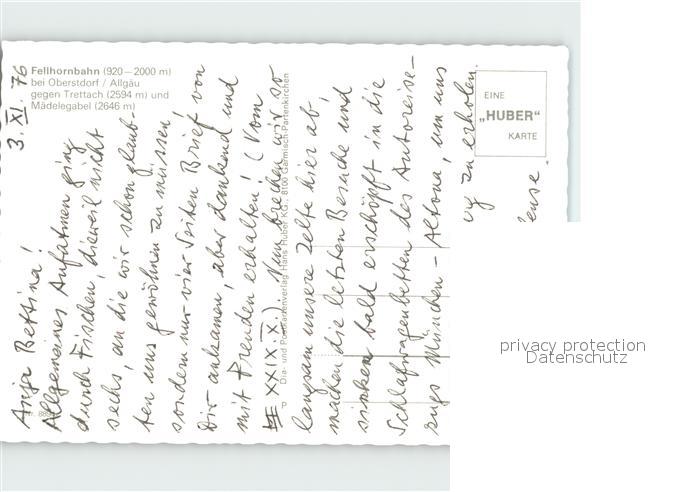 Fellhornbahn (920–2000 m)
bei Oberstdorf / Allgäu
gegen Trettach (2594 m) und
Mädelegabel (2646 m)
EINE
„HUBER"
KARTE
Dia- und Postkartenverlag Hans Huber KG., 8100 Garmisch-Partenkirchen
3. XI. 76
Bettina!
Allgemeines Aufatmen ging
durch Fischen, dieweil nicht
sechs, an die wir schon glaub-
ten uns gewöhnen zu müssen,
sondern nur vier Seiten Brief von
Dir ankamen, aber dankend und
mit Freuden erhalten! (Vom
XXIX. X.). Nun brechen wir so
langsam unsere Zelte hier ab,
machen die letzten Besuche und
sinken bald erschöpft in die
Schlafwagenbetten des Autoreise-
zugs München – Altona, um uns
zu erholen.
P
privacy protection
Datenschutz